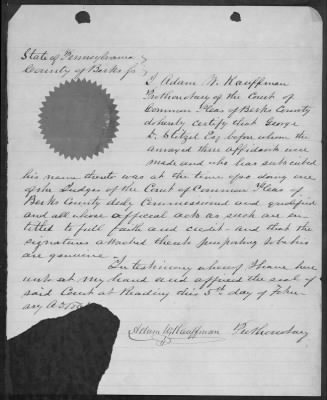 State of Pennsylvania
County of Berks ss
I Adam W. Kauffman
Prothonotary of the Court of
Common Pleas of Berks County
do hereby certify that George
D. Stitzel Esq before whom the
annexed three affidavits were
made and who has subscribed
his name thereto was at the time of so doing one
of the Judges of the Court of Common Pleas of
Berks County duly Commissioned and qualified
and all whose official acts as such are en-
titled to full faith and credit - and that the
signature attached thereto purporting to be his
are genuine.
In testimony whereof I have here
unto set my hand and affixed the seal of
said Court at Reading this 5th day of Febru-
ary A D
Adam W Kauffman Prothonotary